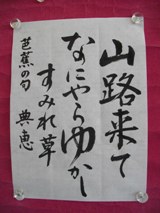 山路来て
なにやらゆかし
すみれ草
芭蕉の句 典恵